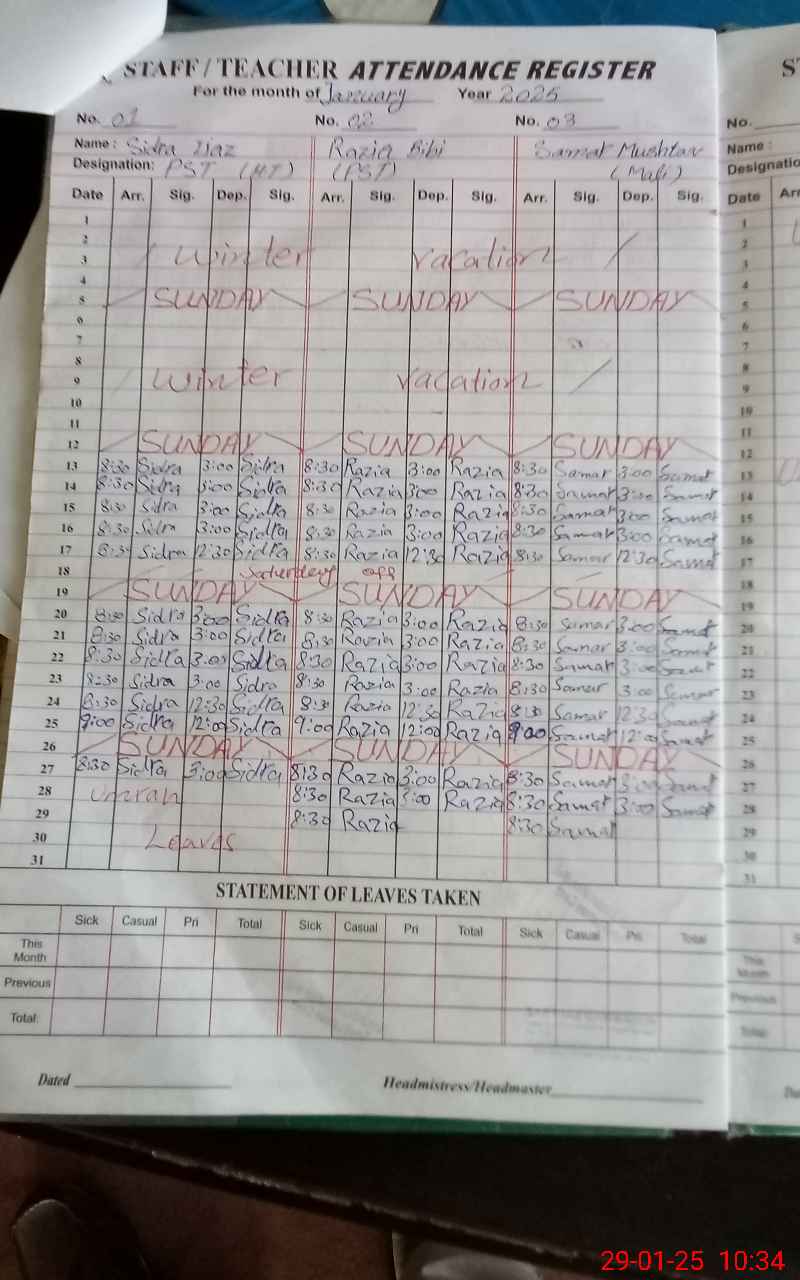 STAFF / TEACHER ATTENDANCE REGISTER
For the month of January Year 2025
No. 01 No. 02 No. 03
Name: Sidra Ijaz Razia Bibi Samar Mushtaq
Designation: PST (HT) (PST) (Mali)
Date Arr. Sig. Dep. Sig. Arr. Sig. Dep. Sig. Arr. Sig. Dep. Sig.
1
2
3 Winter vacation
4
5 SUNDAY SUNDAY SUNDAY
6
7
8
9 Winter vacation
10
11
12 SUNDAY SUNDAY SUNDAY
13 8:30 Sidra 3:00 Sidra 8:30 Razia 3:00 Razia 8:30 Samar 3:00 Samar
14 8:30 Sidra 3:00 Sidra 8:30 Razia 3:00 Razia 8:30 Samar 3:00 Samar
15 8:30 Sidra 3:00 Sidra 8:30 Razia 3:00 Razia 8:30 Samar 3:00 Samar
16 8:30 Sidra 3:00 Sidra 8:30 Razia 3:00 Razia 8:30 Samar 3:00 Samar
17 8:30 Sidra 12:30 Sidra 8:30 Razia 12:30 Razia 8:30 Samar 12:30 Samar
18 Saturday off
19 SUNDAY SUNDAY SUNDAY
20 8:30 Sidra 3:00 Sidra 8:30 Razia 3:00 Razia 8:30 Samar 3:00 Samar
21 8:30 Sidra 3:00 Sidra 8:30 Razia 3:00 Razia 8:30 Samar 3:00 Samar
22 8:30 Sidra 3:00 Sidra 8:30 Razia 3:00 Razia 8:30 Samar 3:00 Samar
23 8:30 Sidra 3:00 Sidra 8:30 Razia 3:00 Razia 8:30 Samar 3:00 Samar
24 8:30 Sidra 12:30 Sidra 8:30 Razia 12:30 Razia 8:30 Samar 12:30 Samar
25 9:00 Sidra 12:00 Sidra 9:00 Razia 12:00 Razia 9:00 Samar 12:00 Samar
26 SUNDAY SUNDAY SUNDAY
27 8:30 Sidra 3:00 Sidra 8:30 Razia 3:00 Razia 8:30 Samar 3:00 Samar
28 Umrah 8:30 Razia 3:00 Razia 8:30 Samar 3:00 Samar
29 8:30 Razia 8:30 Samar
30 Leaves
31
STATEMENT OF LEAVES TAKEN
Sick Casual Pri Total Sick Casual Pri Total Sick Casual Pri Total
This Month
Previous
Total:
Dated Headmistress/Headmaster
No.
Name :
Date
1
2
3
4
5
6
7
8
9
10
11
12
13
14
15
16
17
18
19
20
21
22
23
24
25
26
27
28
29
30
31
29-01-25 10:34